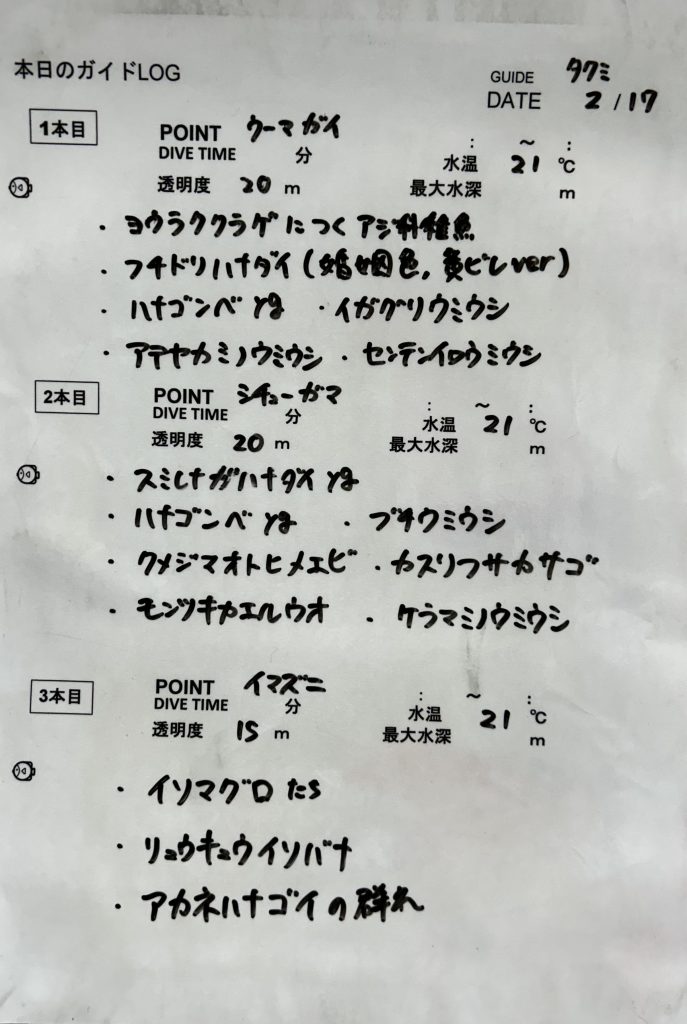 本日のガイドLOG
GUIDE タクミ
DATE 2/17
1本目 POINT クーマガイ
DIVE TIME 分 : ~ :
水温 21 ℃
透明度 20 m 最大水深 m
・ヨウラククラゲにつくアジ科稚魚
・フチドリハナダイ(婚姻色,黄ビレver)
・ハナゴンベ yg ・イガグリウミウシ
・アデヤカミノウミウシ ・センテンイロウミウシ
2本目 POINT シチューガマ
DIVE TIME 分 : ~ :
水温 21 ℃
透明度 20 m 最大水深 m
・スミレナガハナダイ yg
・ハナゴンベ yg ・ブチウミウシ
・クメジマオトヒメエビ ・カスリフサカサゴ
・モンツキカエルウオ ・ケラマミノウミウシ
3本目 POINT イマズニ
DIVE TIME 分 : ~ :
水温 21 ℃
透明度 15 m 最大水深 m
・イソマグロたち
・リュウキュウイソバナ
・アカネハナゴイの群れ